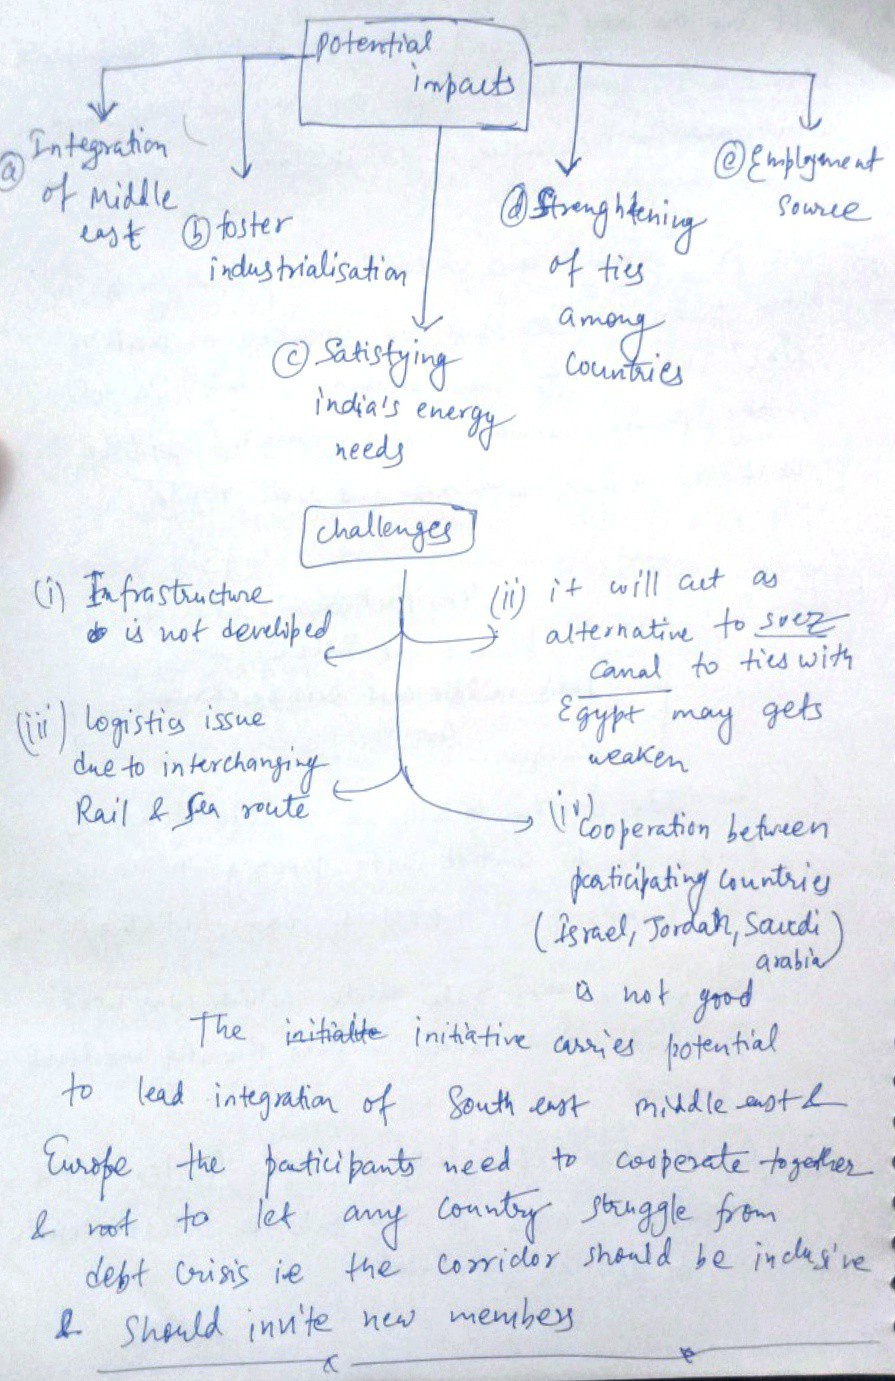 Potential
impacts
(a) Integration
of Middle
east
(b) foster
industrialisation
(c) Satisfying
india's energy
needs
(d) Strenghtening
of ties
among
Countries
(e) Employement
source
Challenges
(i) Infrastructure
is not develiped
(ii) it will act as
alternative to suez
canal to ties with
Egypt may gets
weaken
(iii) logistics issue
due to interchanging
Rail & Sea route
(iv)
Cooperation between
participating countries
(Israel, Jordan, Saudi
arabia)
is not good
The initialte initiative carries potential
to lead integration of South east middle east &
Europe the participants need to cooperate together
& not to let any country struggle from
debt crisis ie the corridor should be inclusive
& should invite new members